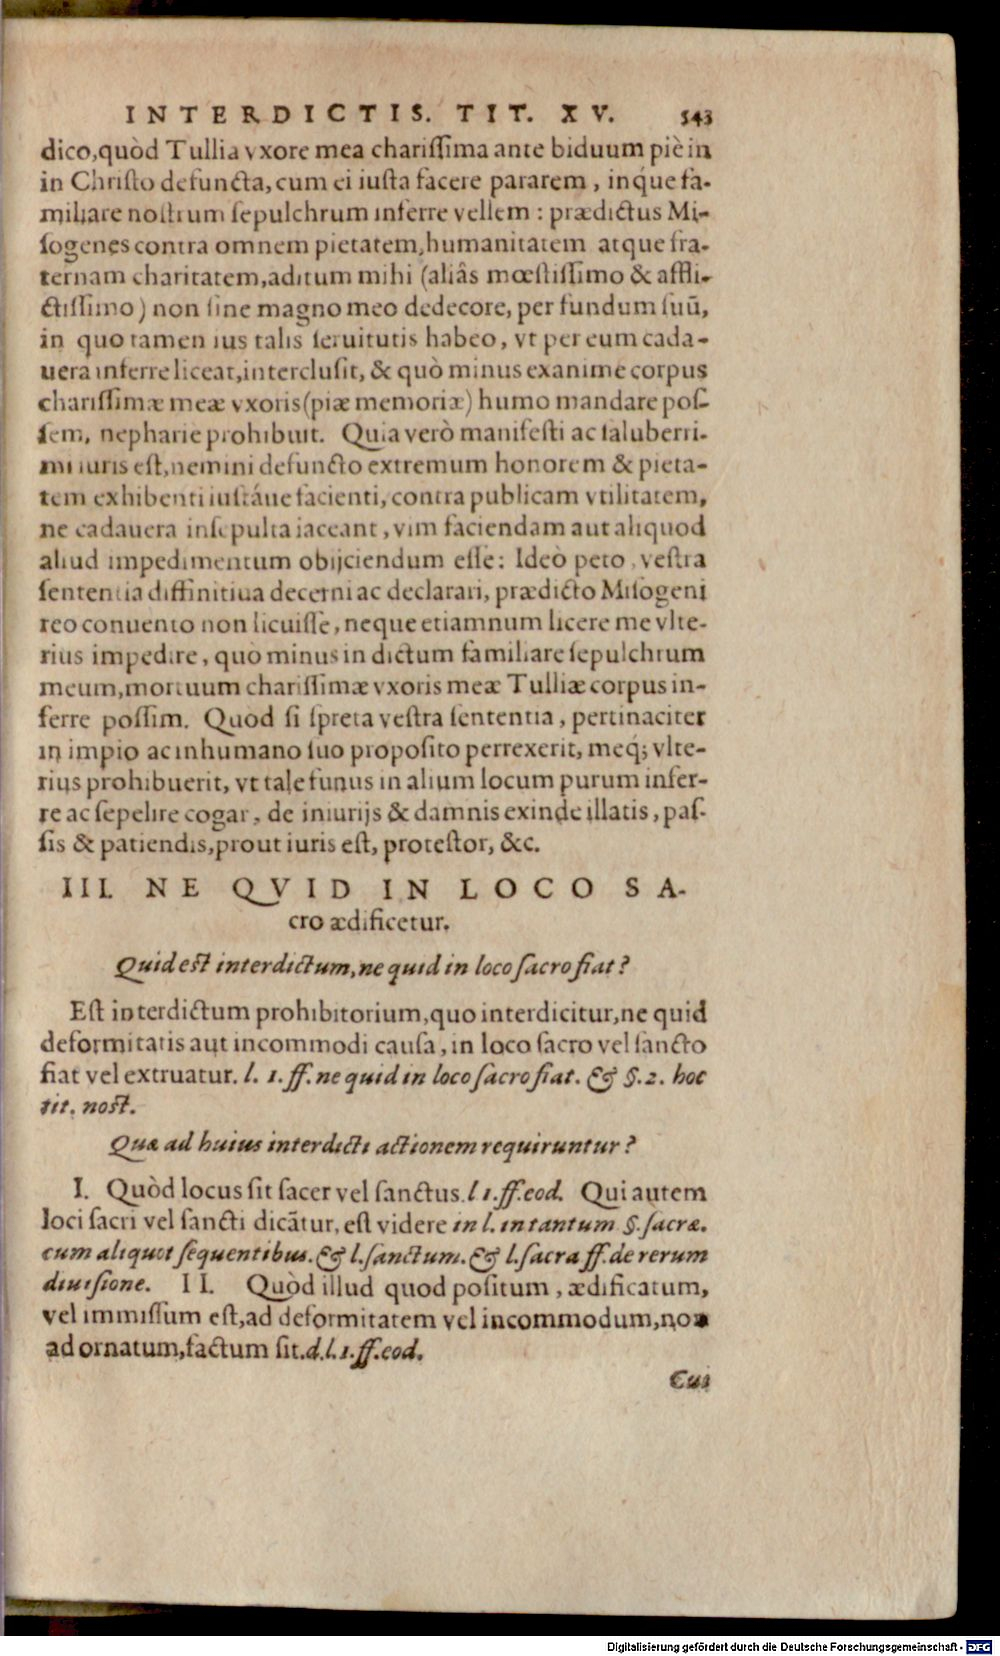 INTERDICTIS. TIT. XV. 543
dico,quòd Tullia vxore mea charissima ante biduum piè in
in Christo defuncta,cum ei iusta facere pararem, inq́ue fa-
miliare nostrum sepulchrum inferre vellem : prædictus Mi-
sogenes contra omnem pietatem,humanitatem atque fra-
ternam charitatem,aditum mihi (aliâs mœstissimo & affli-
ctissimo) non sine magno meo dedecore, per fundum suũ,
in quo tamen ius talis seruitutis habeo, vt per eum cada-
uera inferre liceat,interclusit, & quò minus exanime corpus
charissimæ meæ vxoris (piæ memoriæ) humo mandare pos-
sem, nepharie prohibuit. Quia verò manifesti ac saluberri-
mi iuris est,nemini defuncto extremum honorem & pieta-
tem exhibenti iustáue facienti, contra publicam vtilitatem,
ne cadauera insepulta iaceant, vim faciendam aut aliquod
aliud impedimentum obijciendum esse: Ideò peto, vestra
sententia diffinitiua decerni ac declarari, prædicto Misogeni
reo conuento non licuisse, neque etiamnum licere me vlte-
rius impedire, quò minus in dictum familiare sepulchrum
meum,mortuum charissimæ vxoris meæ Tulliæ corpus in-
ferre possim. Quod si spreta vestra sententia, pertinaciter
in impio ac inhumano suo proposito perrexerit, meq́; vlte-
rius prohibuerit, vt tale funus in alium locum purum infer-
re ac sepelire cogar, de iniurijs & damnis exinde illatis, pas-
sis & patiendis,prout iuris est, protestor, &c.
III. NE QVID IN LOCO SA-
cro ædificetur.
Quid est interdictum,ne quid in loco sacro fiat?
Est interdictum prohibitorium,quo interdicitur,ne quid
deformitatis aut incommodi causa, in loco sacro vel sancto
fiat vel extruatur. l. 1. ff. ne quid in loco sacro fiat. & §. 2. hoc
tit. nost.
Quæ ad huius interdicti actionem requiruntur?
I. Quòd locus sit sacer vel sanctus. l 1. ff. eod. Qui autem
loci sacri vel sancti dicãtur, est videre in l. in tantum §. sacræ.
cum aliquot sequentibus. & l. sanctum. & l. sacra ff. de rerum
diuisione. II. Quòd illud quod positum, ædificatum,
vel immissum est,ad deformitatem vel incommodum,non
ad ornatum,factum sit. d. l. 1. ff. eod.
Cui
Digitalisierung gefördert durch die Deutsche Forschungsgemeinschaft - DFG